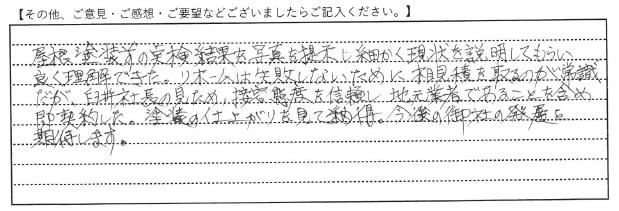 【その他、ご意見・ご感想・ご要望などございましたらご記入ください。】
屋根塗装等の点検結果を写真を提示し細かく現状を説明してもらい
良く理解できた。リホームは失敗しないために相見積を取るのが常識
だが、臼井社長の見ため、接客態度を信頼し地元業者であることを含め
即契約した。塗装の仕上がりを見て納得。今後の御社の発展を
期待します。